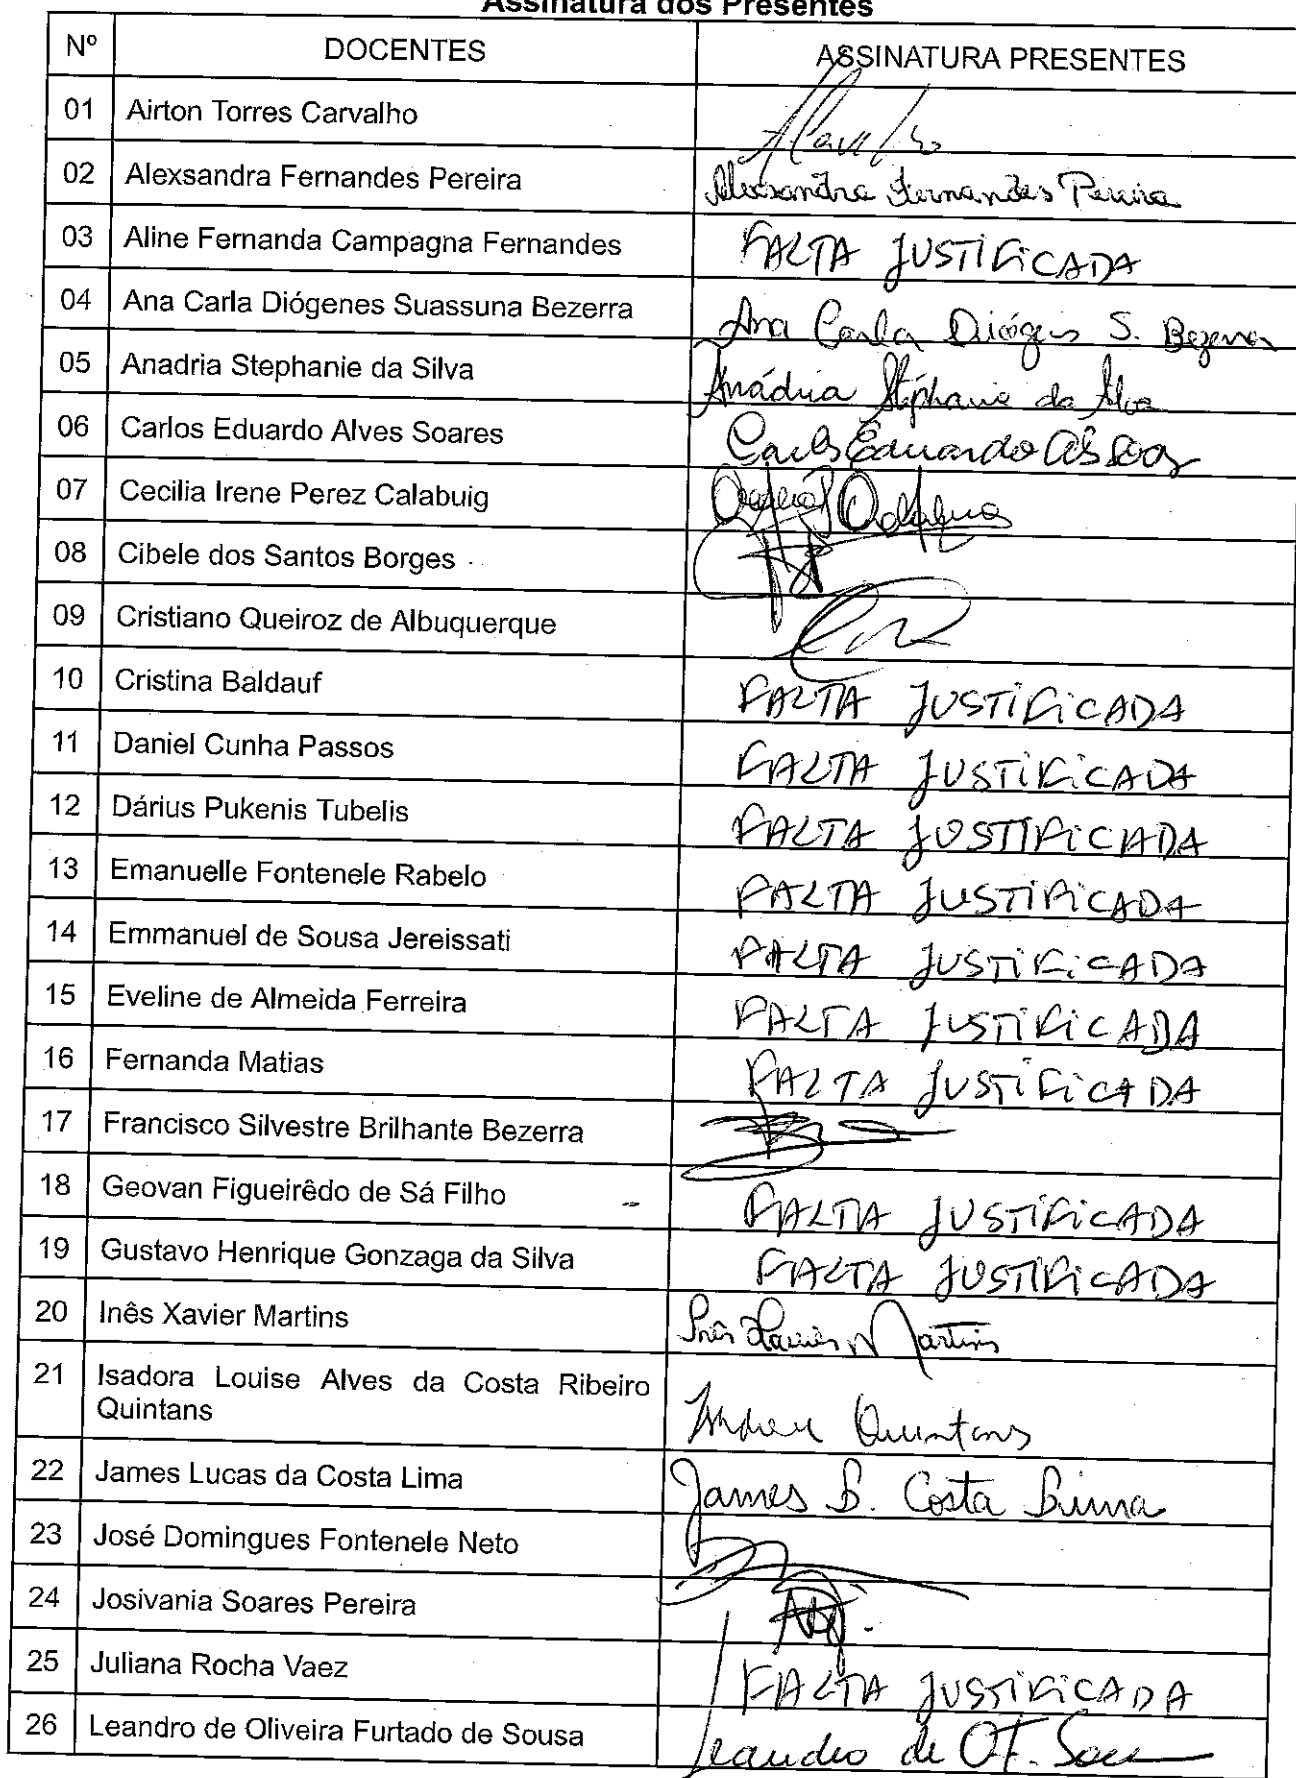 Assinatura dos Presentes
Nº DOCENTES ASSINATURA PRESENTES
01 Airton Torres Carvalho
02 Alexsandra Fernandes Pereira Alexsandra Fernandes Pereira
03 Aline Fernanda Campagna Fernandes FALTA JUSTIFICADA
04 Ana Carla Diógenes Suassuna Bezerra Ana Carla Diógenes S. Bezerra
05 Anadria Stephanie da Silva Anádria Stéphanie da Silva
06 Carlos Eduardo Alves Soares Carlos Eduardo
07 Cecilia Irene Perez Calabuig
08 Cibele dos Santos Borges
09 Cristiano Queiroz de Albuquerque
10 Cristina Baldauf FALTA JUSTIFICADA
11 Daniel Cunha Passos FALTA JUSTIFICADA
12 Dárius Pukenis Tubelis FALTA JUSTIFICADA
13 Emanuelle Fontenele Rabelo FALTA JUSTIFICADA
14 Emmanuel de Sousa Jereissati FALTA JUSTIFICADA
15 Eveline de Almeida Ferreira FALTA JUSTIFICADA
16 Fernanda Matias FALTA JUSTIFICADA
17 Francisco Silvestre Brilhante Bezerra
18 Geovan Figueirêdo de Sá Filho FALTA JUSTIFICADA
19 Gustavo Henrique Gonzaga da Silva FALTA JUSTIFICADA
20 Inês Xavier Martins Inês Xavier Martins
21 Isadora Louise Alves da Costa Ribeiro
Quintans Quintans
22 James Lucas da Costa Lima James L. Costa Lima
23 José Domingues Fontenele Neto
24 Josivania Soares Pereira
25 Juliana Rocha Vaez FALTA JUSTIFICADA
26 Leandro de Oliveira Furtado de Sousa Leandro de O.F. Sousa